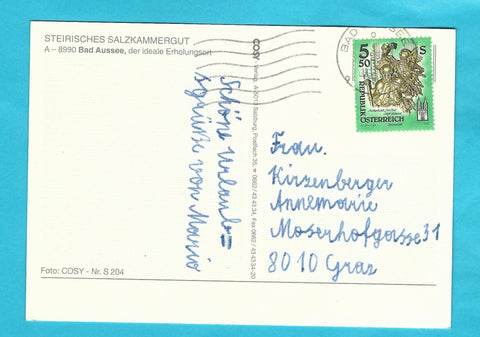 STEIRISCHES SALZKAMMERGUT
A – 8990 Bad Aussee, der ideale Erholungsort
Schöne Urlaub=
sgrüße von Mario
Foto: COSY - Nr. S 204
COSY Verlag, A-5013 Salzburg, Postfach 35, 0662/43 43 34, Fax 0662/43 43 34-20
BAD AUSSEE
5 50 S
REPUBLIK
ÖSTERREICH
Frau.
Kirzenberger
Annemarie
Moserhofgasse 31
8010 Graz